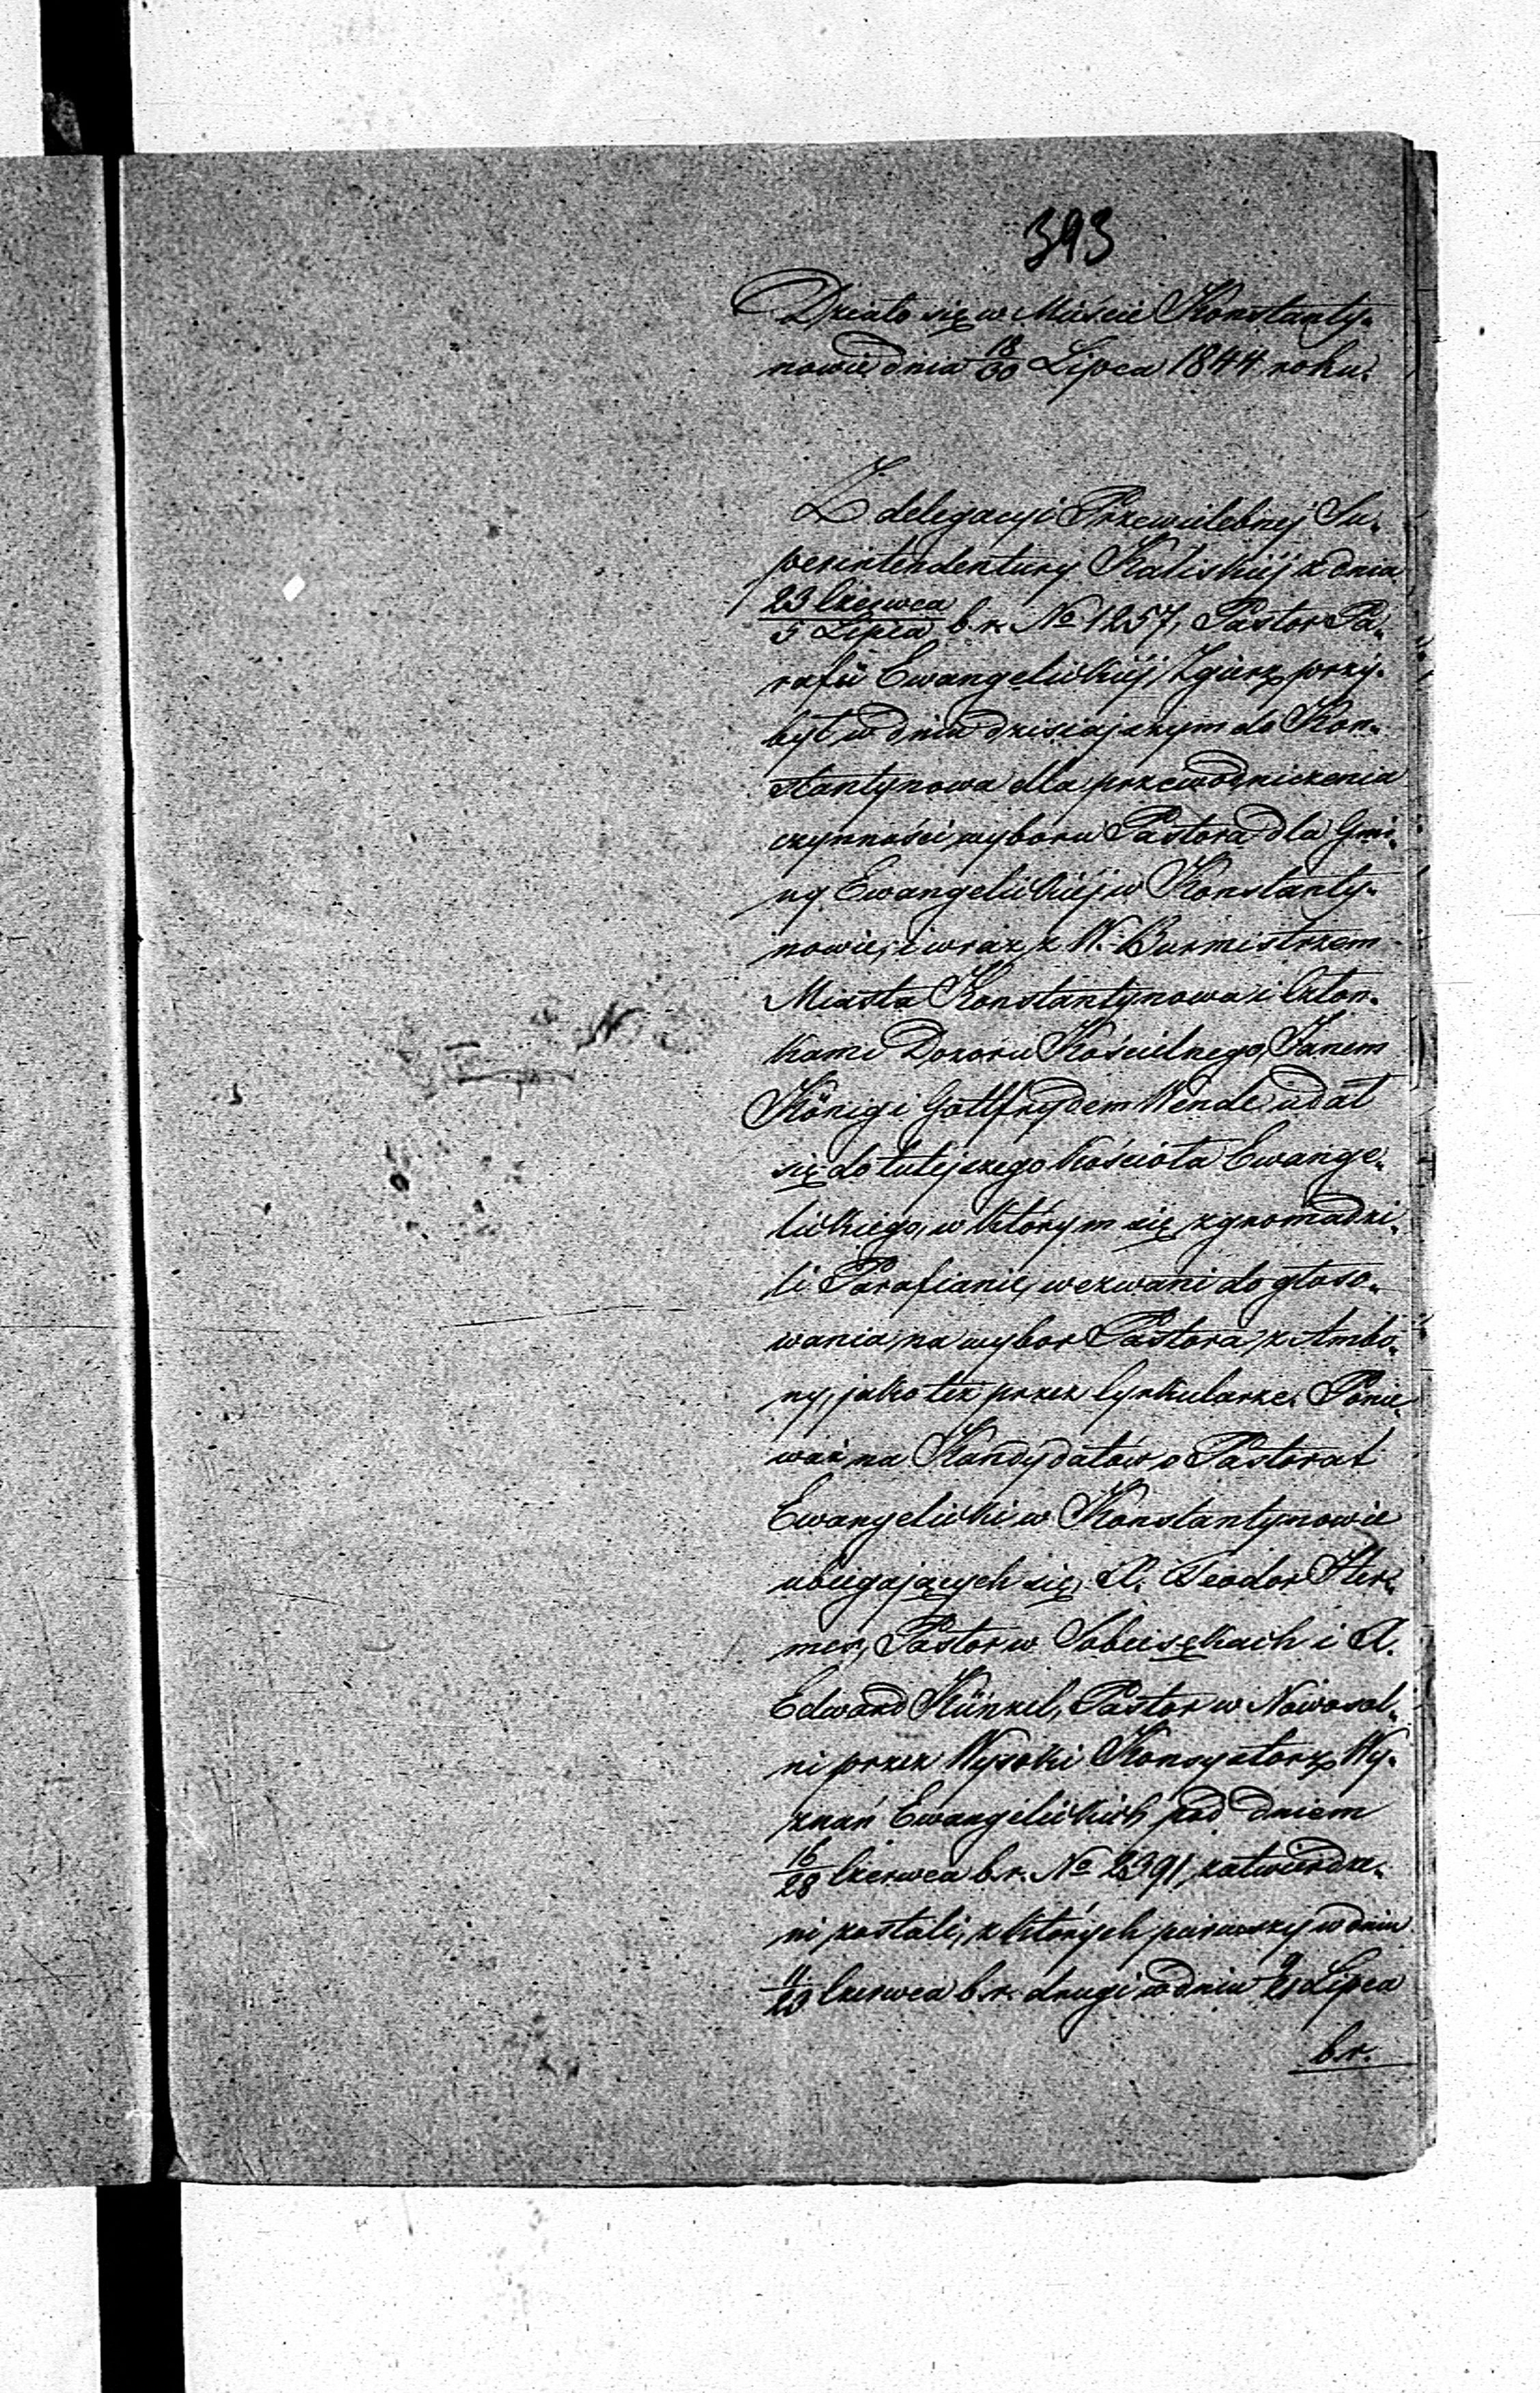 393
Działo się w Mieście Konstanty-
nowie dnia 18/30 Lipca 1844 roku.
Z delegacyi Przewielebnej Su-
perintendentury Kaliskiéj z dnia
23 Czerwca/5 Lipca b.r. No 1257, Pastor Pa-
rafii Ewangelickiéj Zgierz przy-
był w dniu dzisiajszym do Kon-
stantynowa dla przewodniczenia
czynności wyboru Pastora dla Gmi-
ny Ewangelickiéj w Konstanty-
nowie, i wraz z W. Burmistrzem
Miasta Konstantynowa i Człon-
kami Dozoru Kościelnego, Janem
König i Gottfrydem Wende udał
się do tutejszego Kościoła Ewange-
lickiego, w którym się zgromadzi-
li Parafianie, wezwani do głoso-
wania na wybor Pastora, z Ambo-
ny, jako też przez Cyrkularze. Ponie-
waż na Kandydatów o Pastorat
Ewangelicki w Konstantynowie
ubiegających się, X. Teodor
Pastor w Sobiesękach i X.
Edward Künzel, Pastor w Nowosol-
ni przez Wysoki Konsystorz Wy-
znań Ewangelickich pod dniem
16/28 Czerwca b.r. No 2391 zatwierdze-
ni zostali, z których pierwszy w dniu
Czerwca b.r. drugi w dniu 9/21 Lipca
b.r.